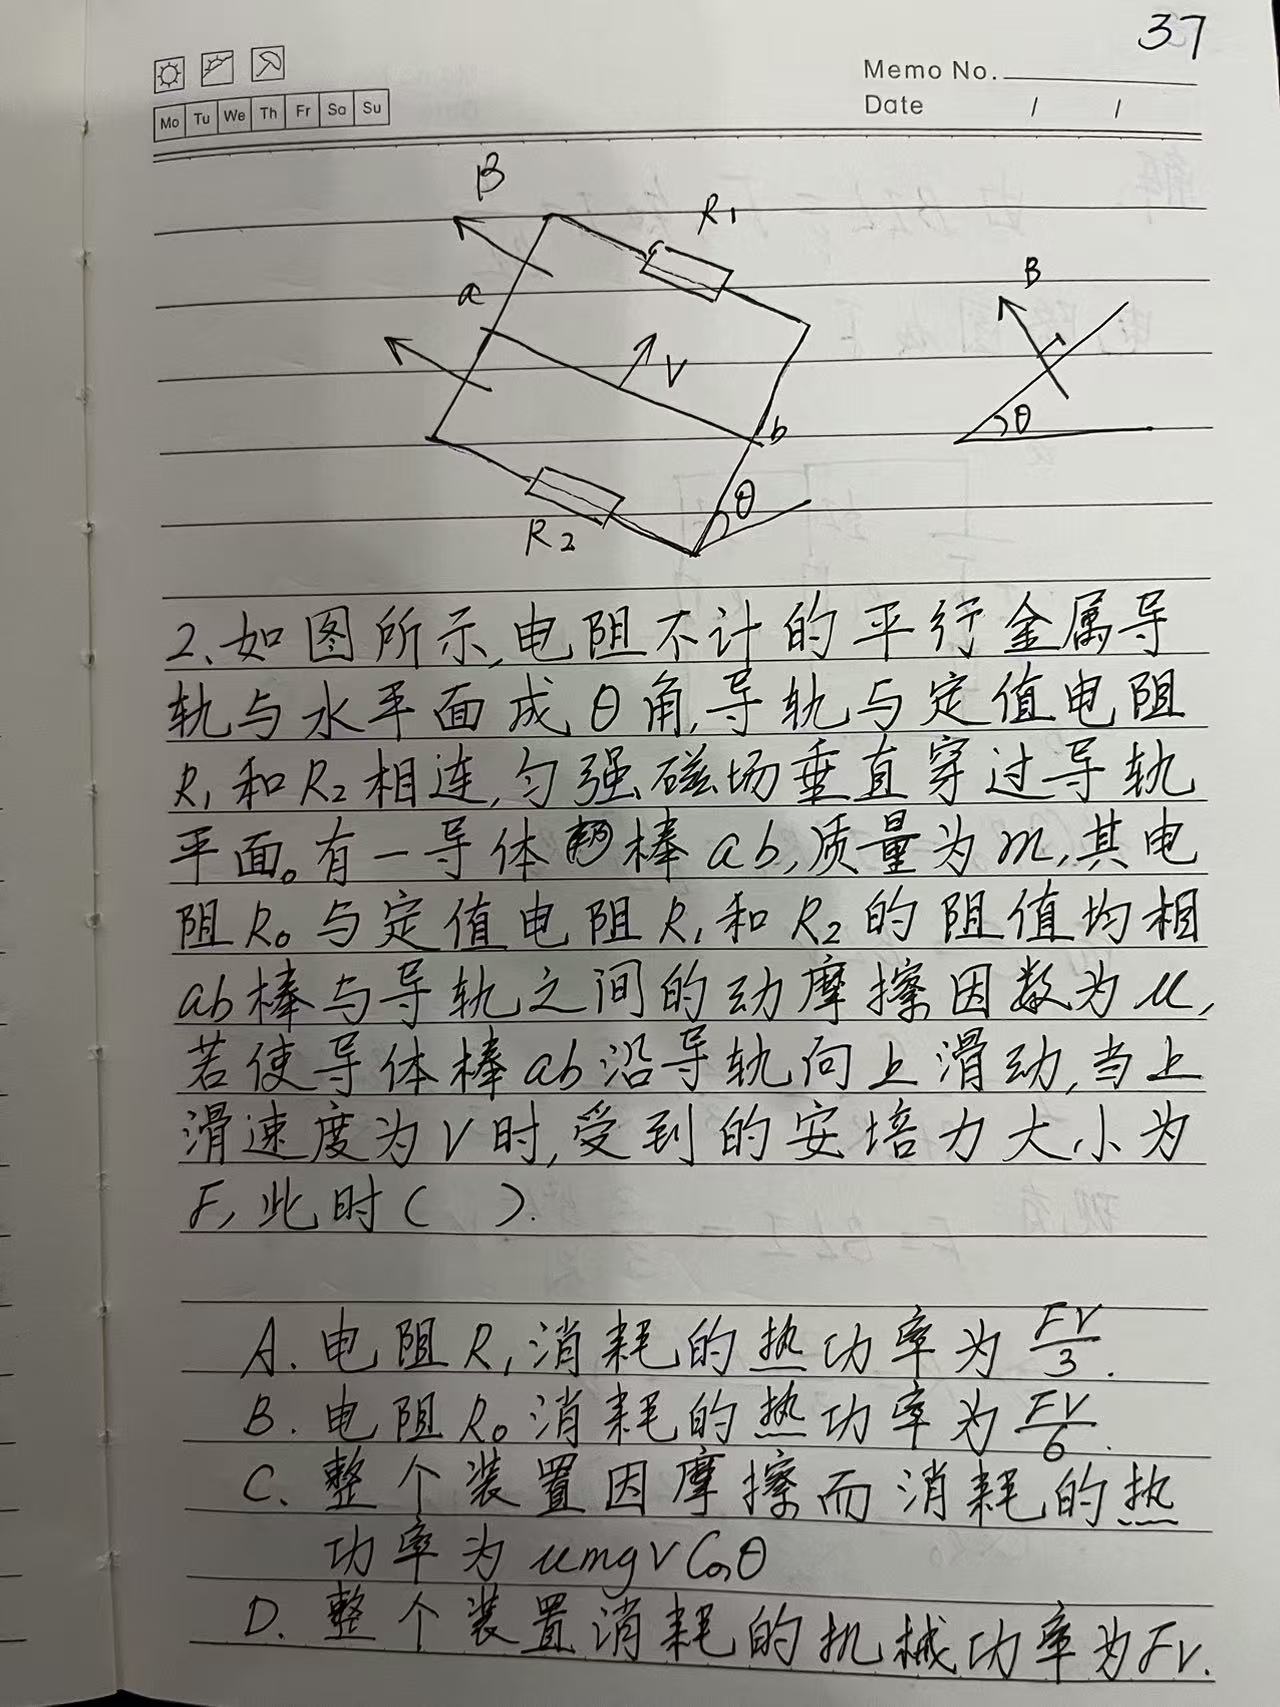 37
Memo No.
Mo Tu We Th Fr Sa Su
Date / /
B
R1
a
B
V
b
θ
θ
R2
2、如图所示,电阻不计的平行金属导
轨与水平面成θ角,导轨与定值电阻
R1和R2相连,匀强磁场垂直穿过导轨
平面。有一导体棒ab,质量为m,其电
阻R0与定值电阻R1和R2的阻值均相
ab棒与导轨之间的动摩擦因数为u,
若使导体棒ab沿导轨向上滑动,当上
滑速度为V时,受到的安培力大小为
F,此时( ).
A.电阻R1消耗的热功率为FV/3.
B.电阻R0消耗的热功率为FV/6.
C.整个装置因摩擦而消耗的热
功率为umgvCosθ
D.整个装置消耗的机械功率为Fv.